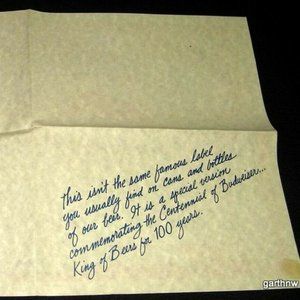 this isn't the same famous label
you usually find on cans and bottles
of our beer. It is a special version
commemorating the Centennial of Budweiser...
King of Beers for 100 years.
garthnw